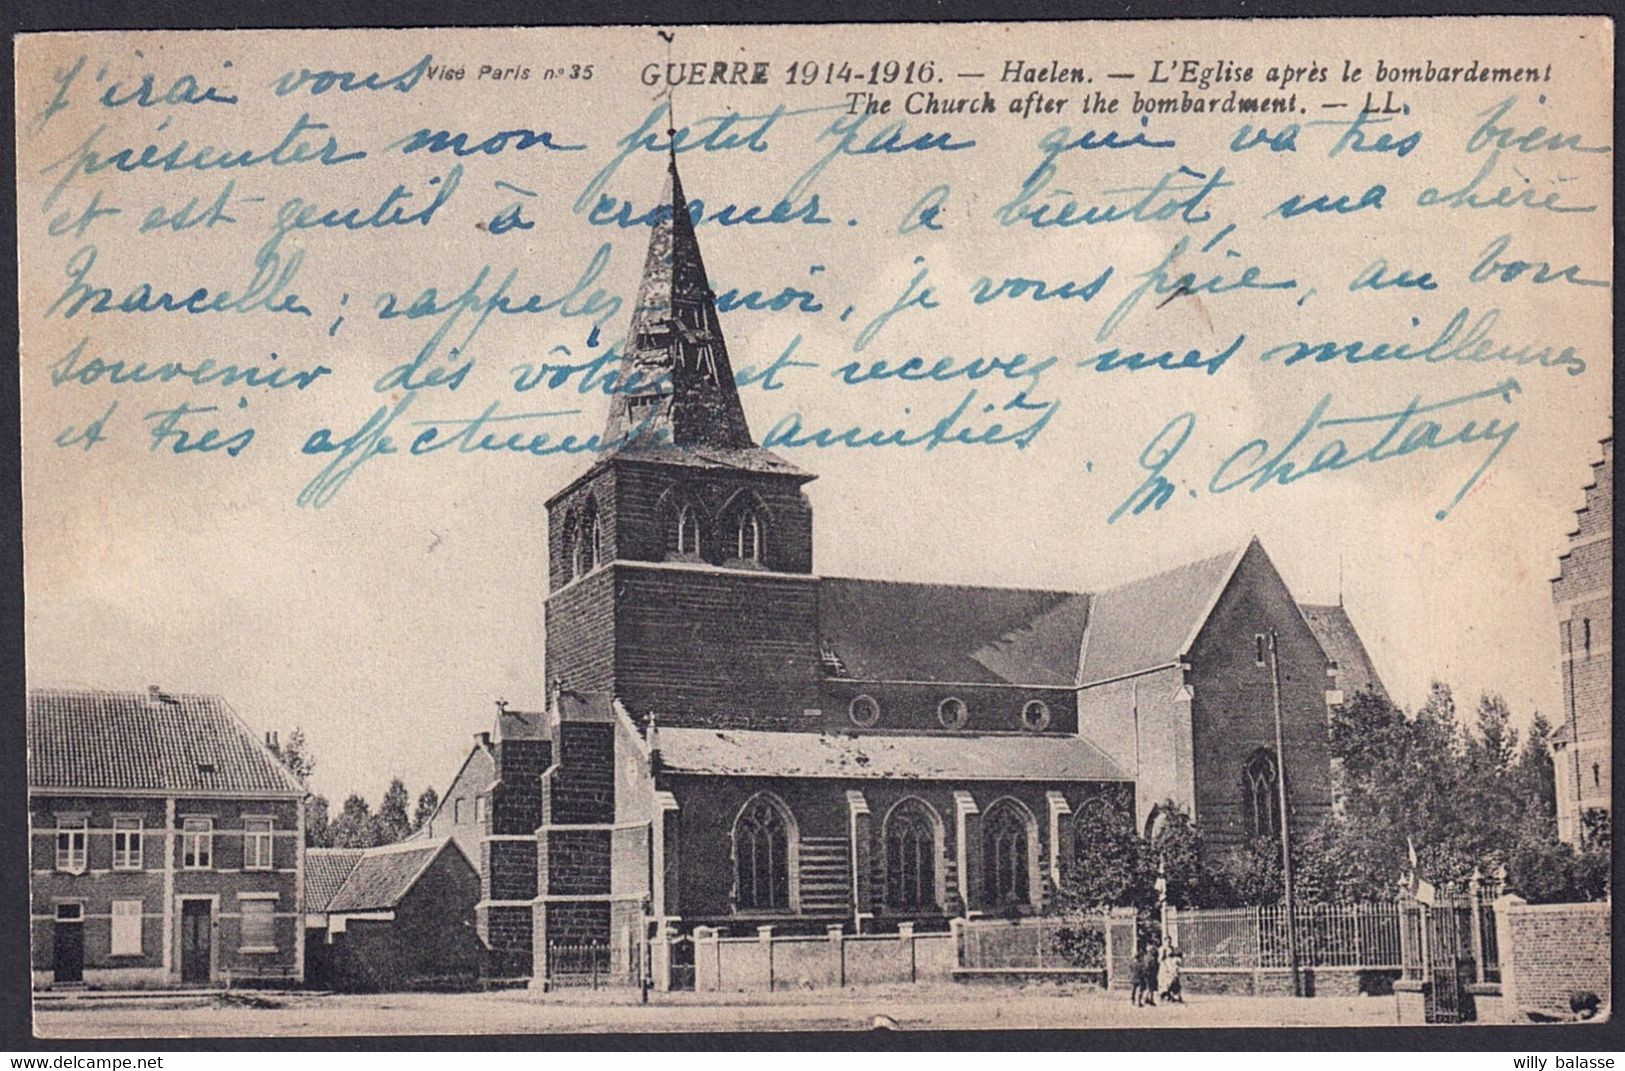 Visé Paris nº 35
GUERRE 1914-1916. — Haelen. — L'Eglise après le bombardement
The Church after the bombardment. — LL.
J'irai vous
présenter mon petit Jan qui va très bien
et est gentil à croquer. A bientôt, ma chère
Marcelle ; rappelez moi, je vous prie, au bon
souvenir dès vôtres et recevez mes meilleures
et très affectueuses amitiés.
M. Chatain
willy balasse